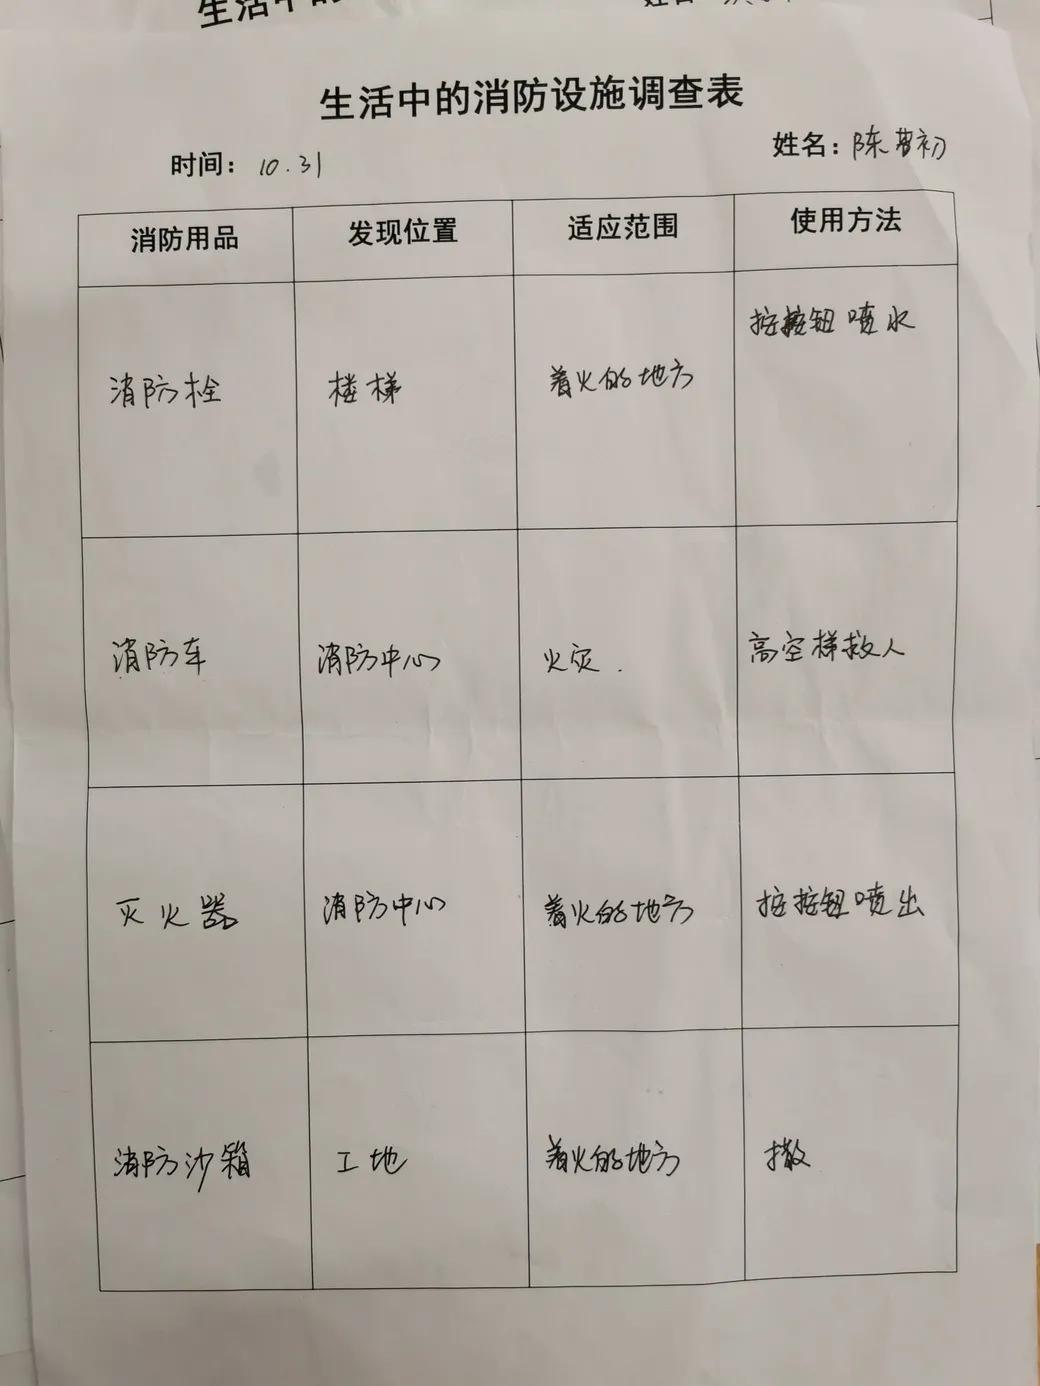 生活中的
生活中的消防设施调查表
时间：10.31
姓名：陈 初
消防用品 发现位置 适应范围 使用方法
消防栓 楼梯 着火的地方 按按钮喷水
消防车 消防中心 火灾. 高空梯救人
灭火器 消防中心 着火的地方 按按钮喷出
消防沙箱 工地 着火的地方 撒